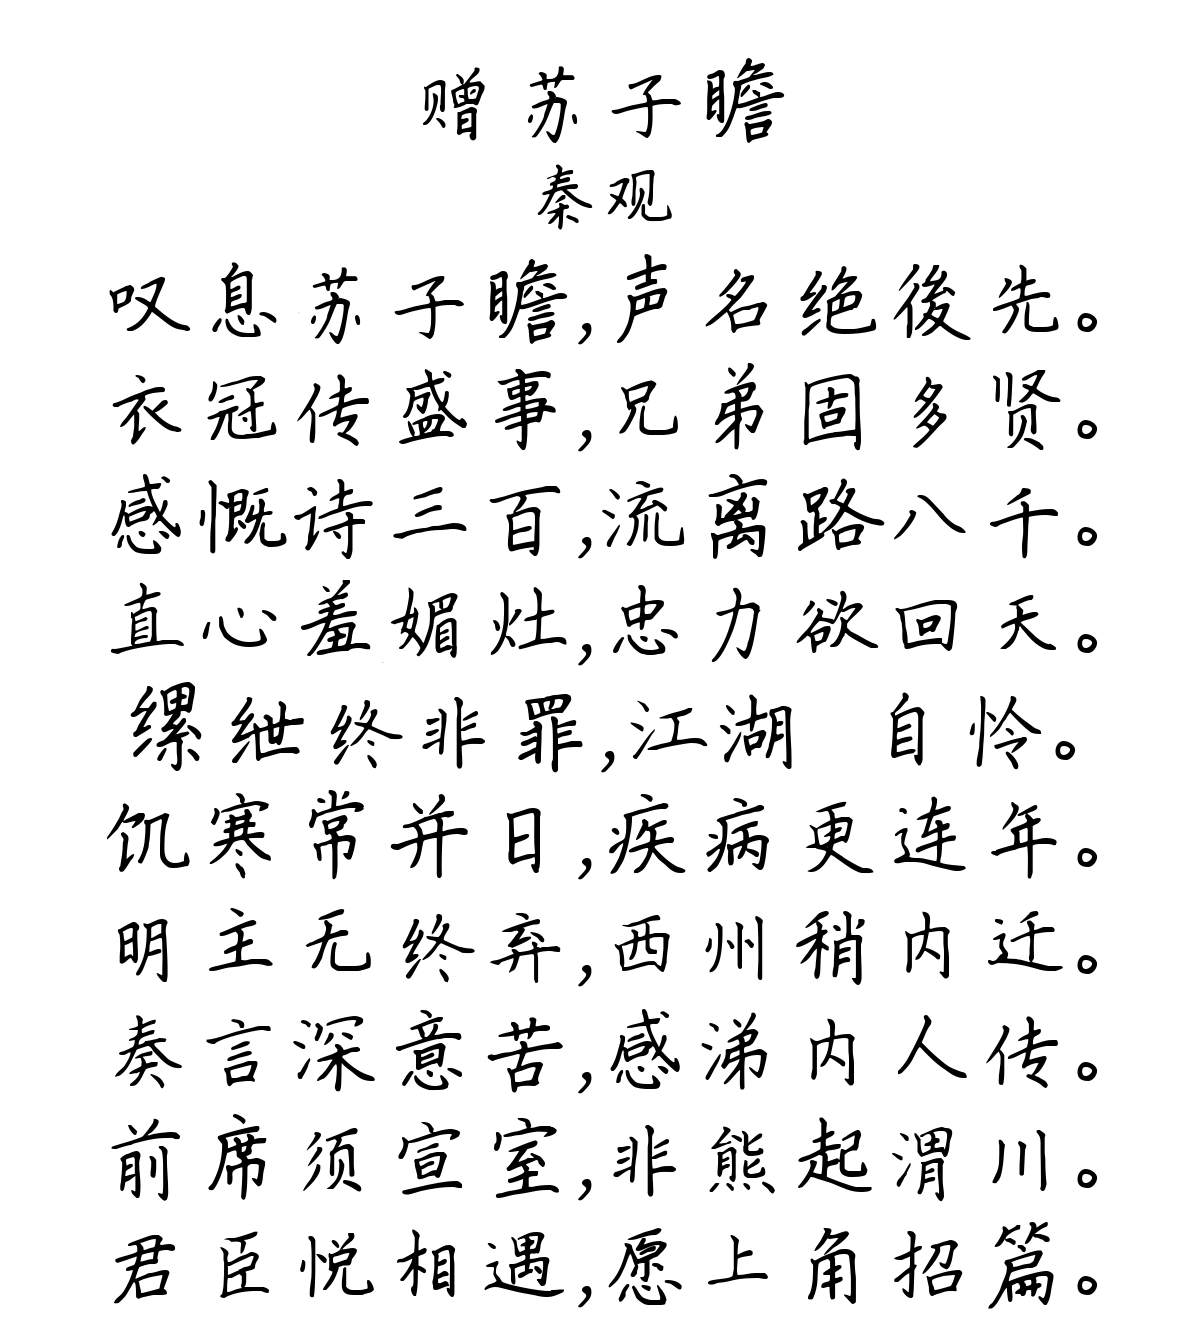 赠苏子瞻
秦观
叹息苏子瞻,声名绝後先。
衣冠传盛事,兄弟固多贤。
感慨诗三百,流离路八千。
直心羞媚灶,忠力欲回天。
缧绁终非罪,江湖 自怜。
饥寒常并日,疾病更连年。
明主无终弃,西州稍内迁。
奏言深意苦,感涕内人传。
前席须宣室,非熊起渭川。
君臣悦相遇,愿上角招篇。